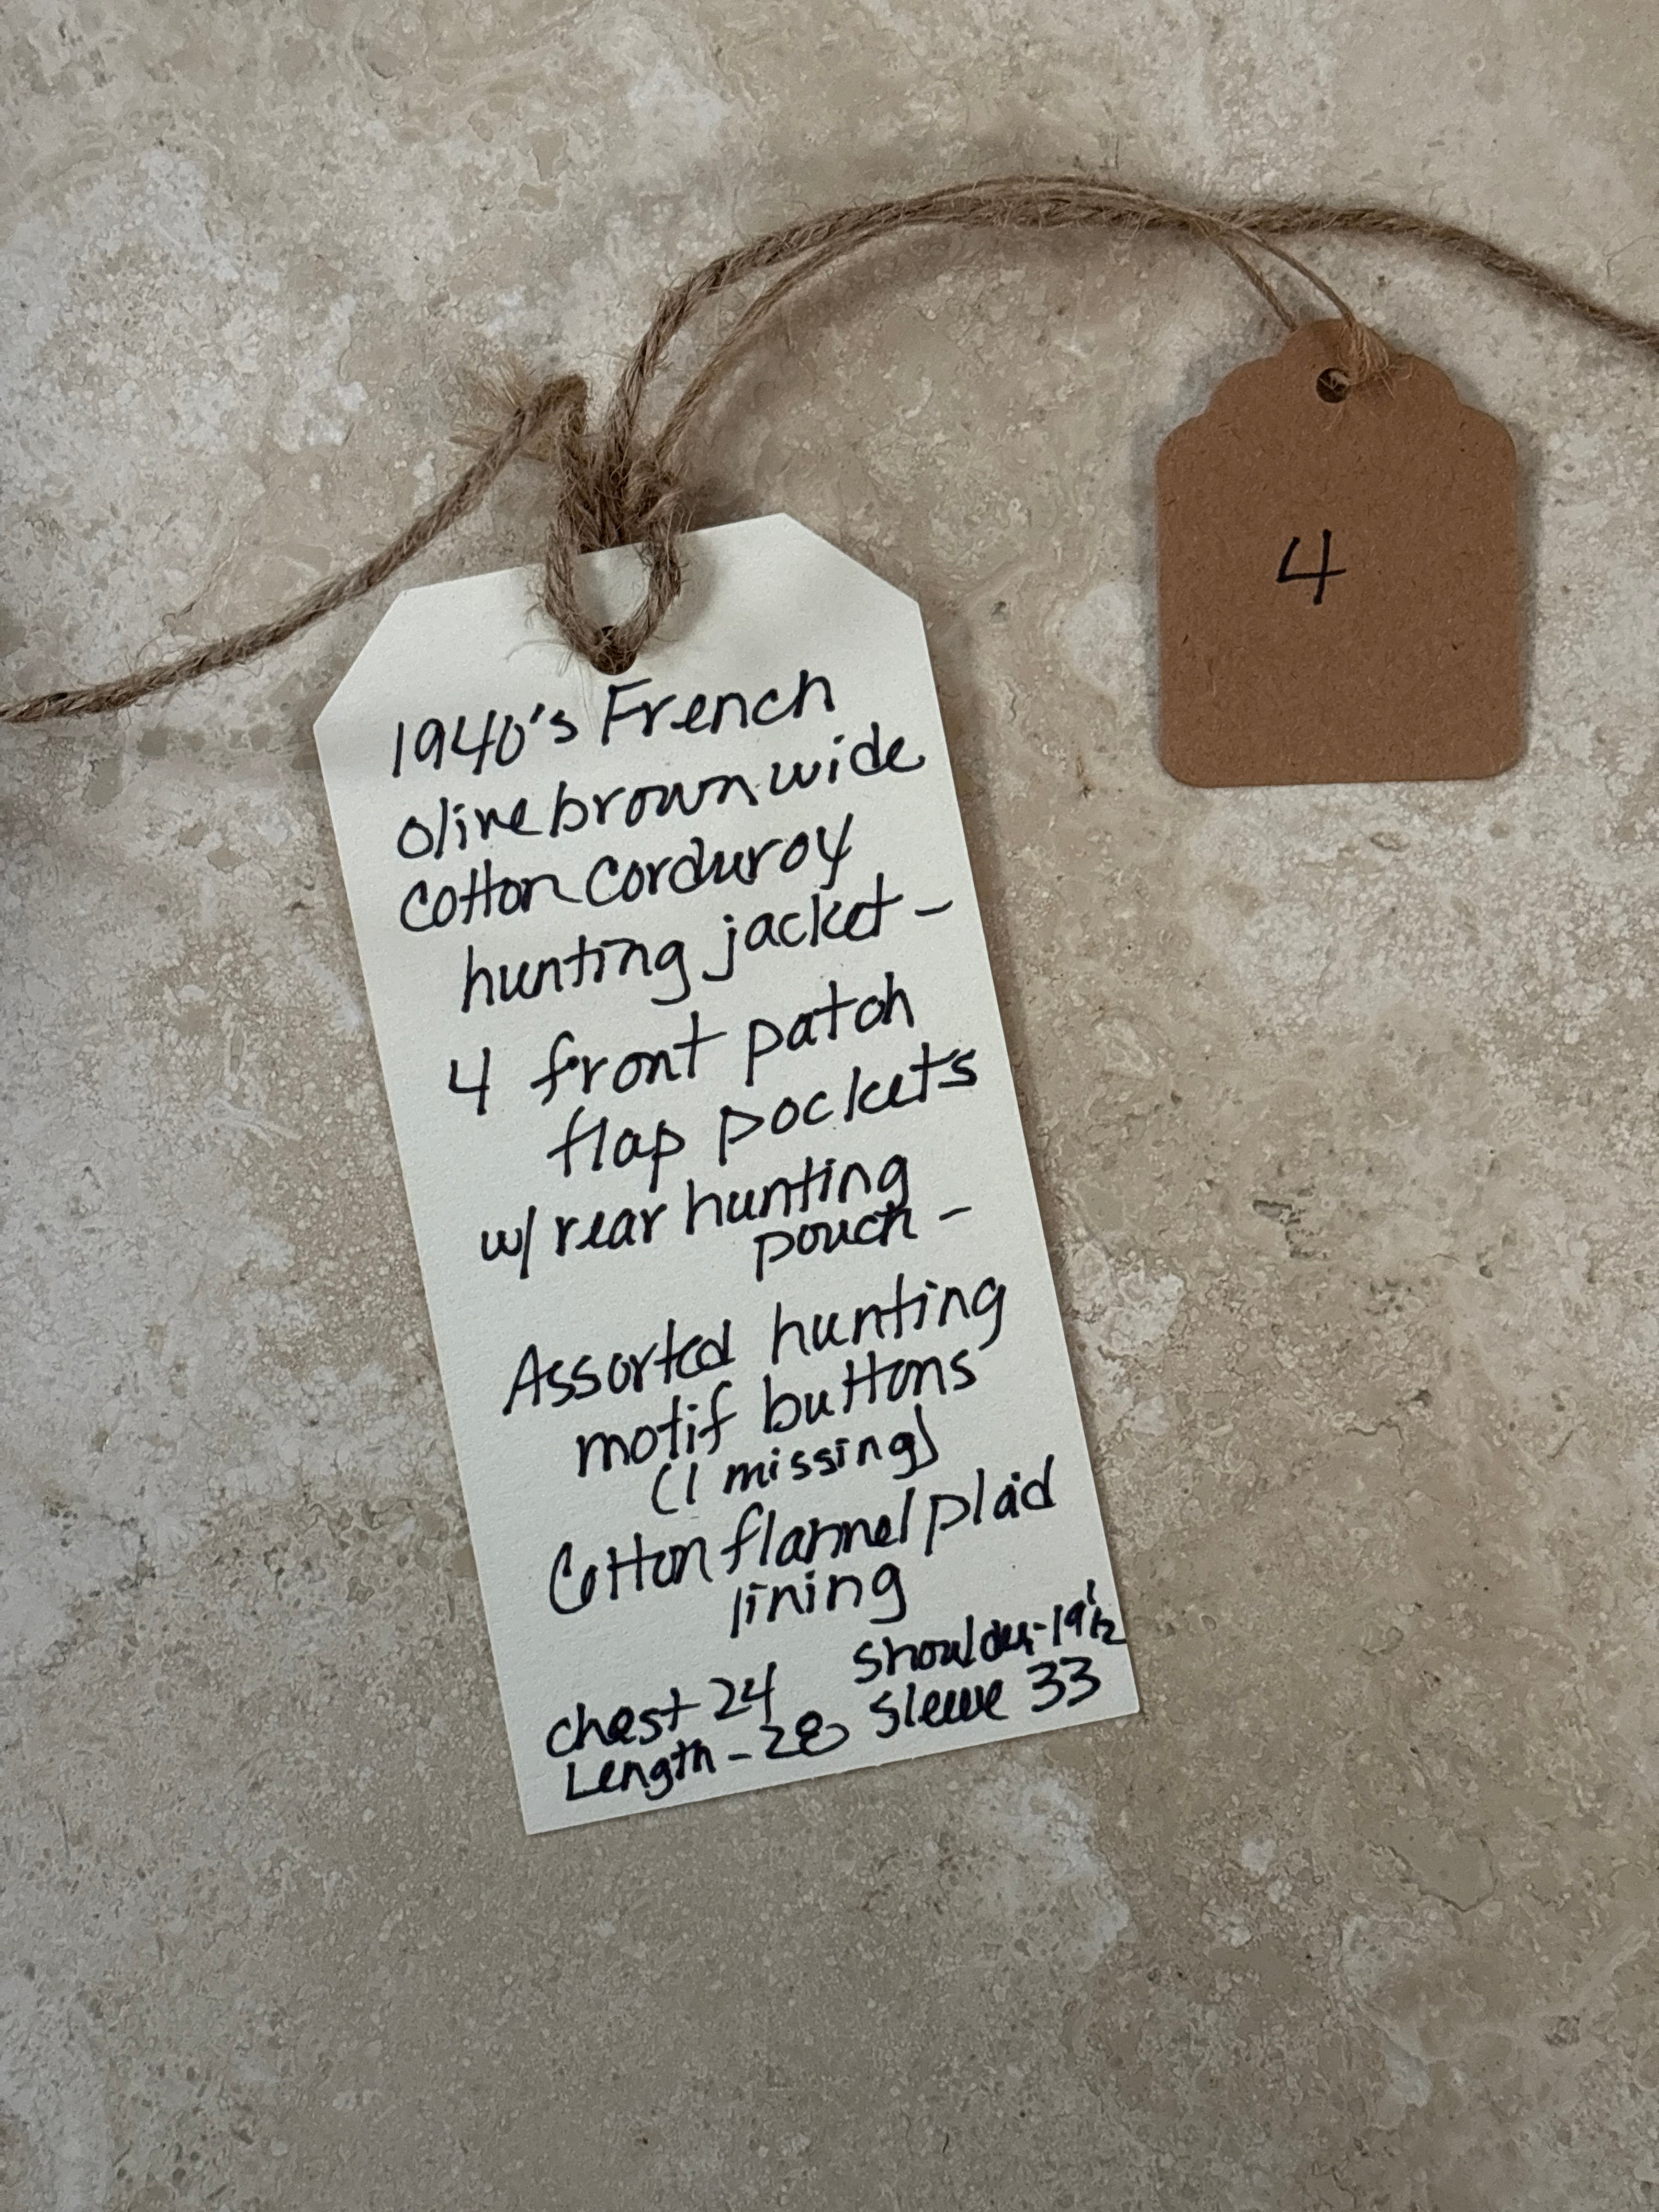 1940's French
olive brown wide
cotton corduroy
hunting jacket -
4 front patch
flap pockets
w/ rear hunting
pouch -
Assorted hunting
motif buttons
(1 missing)
Cotton flannel plaid
lining
Shoulder - 19 1/2
chest 24
Sleeve 33
Length - 28
4